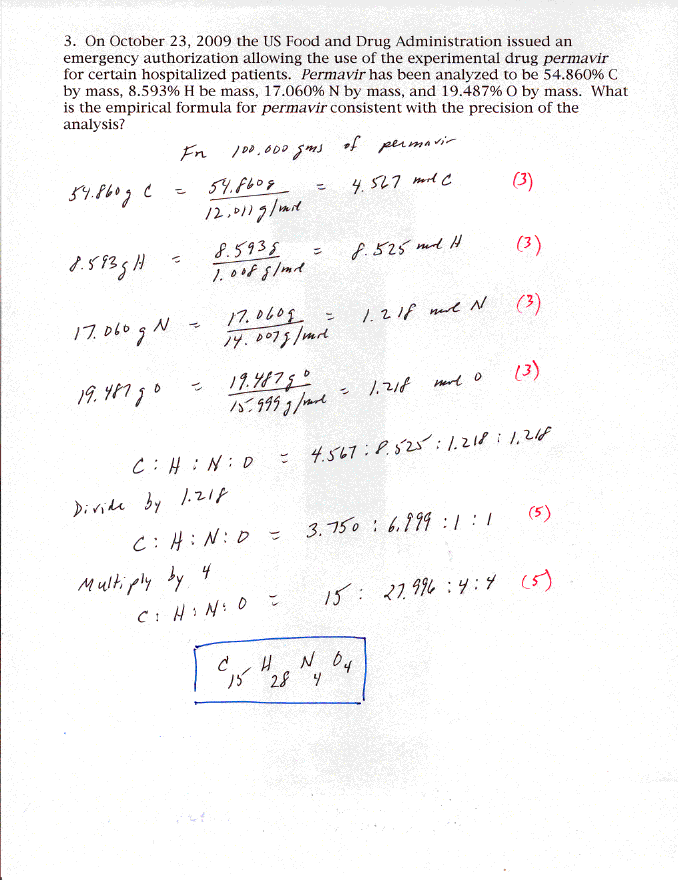 3. On October 23, 2009 the US Food and Drug Administration issued an
emergency authorization allowing the use of the experimental drug permavir
for certain hospitalized patients. Permavir has been analyzed to be 54.860% C
by mass, 8.593% H be mass, 17.060% N by mass, and 19.487% O by mass. What
is the empirical formula for permavir consistent with the precision of the
analysis?
For 100.000 gms of permavir
54.860 g C = 54.860 g / 12.011 g/mol = 4.567 mol C (3)
8.593 g H = 8.593 g / 1.008 g/mol = 8.525 mol H (3)
17.060 g N = 17.060 g / 14.007 g/mol = 1.218 mol N (3)
19.487 g O = 19.487 g O / 15.999 g/mol = 1.218 mol O (3)
C : H : N : O = 4.567 : 8.525 : 1.218 : 1.218
Divide by 1.218
C : H : N : O = 3.750 : 6.999 : 1 : 1 (5)
Multiply by 4
C : H : N : O = 15 : 27.996 : 4 : 4 (5)
C15 H28 N4 O4